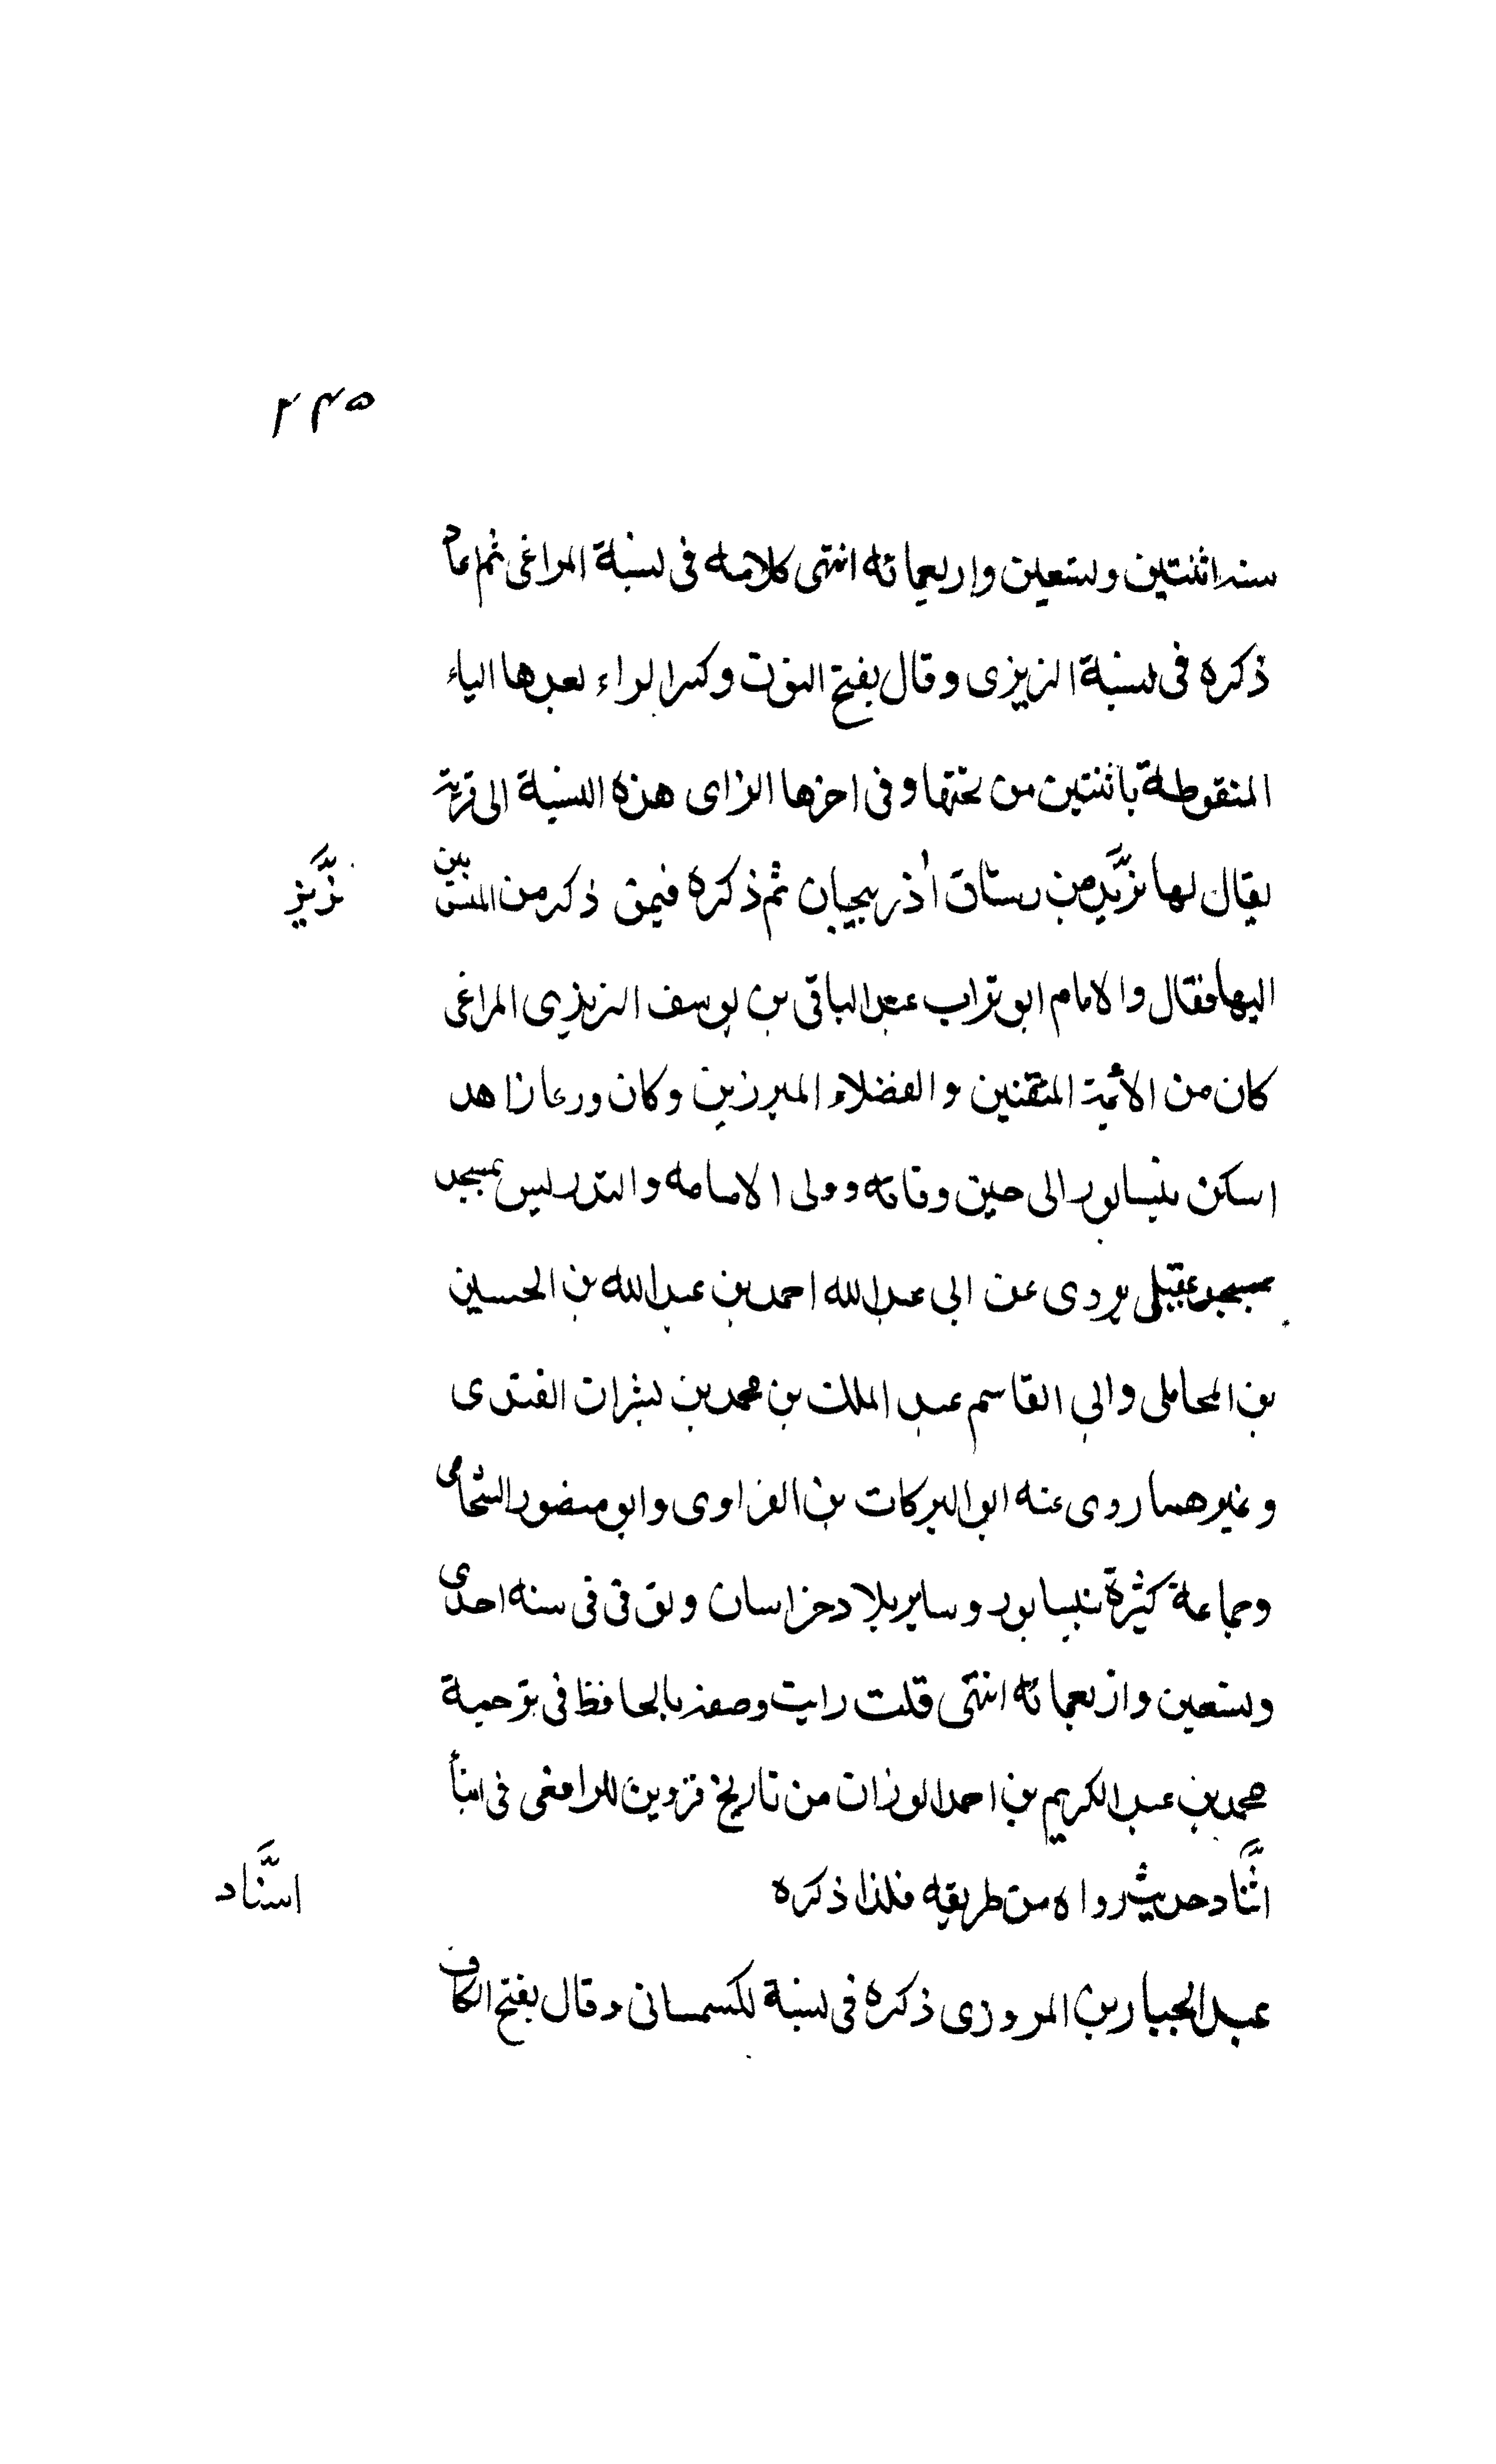 ۲۴۵
سنه اثنتين وتسعين واربعمائه انتهى كلامه فى نسبة المراغى ثم اعاد
ذكره فى نسبة النريزى وقال بفتح النون وكسر الراء بعدها الياء
المنقوطة باثنتين من تحتها وفى اخرها الزاى هذه النسبة الى قرية
يقال لها نريز من رستاق اذربيجان ثم ذكره فيمن ذكر من المنسوبين
نريز
اليها فقال والامام ابو تراب عبد الباقى بن يوسف النريزى المراغى
كان من الائمة المتقنين والفضلاء المبرزين وكان ورعا زاهد
اسكن نيسابور الى حين وفاته وولى الامامه والتدريس بمسجد
بمسجد عقيلى يروى عن ابى عبد الله احمد بن عبد الله بن الحسين
بن المحاملى وابى القاسم عبد الملك بن محمد بن بشران القندى
وغيرهما روى عنه ابو البركات بن الفراوى وابو منصور الشحامى
وجماعة كثيرة بنيسابور وساير بلاد خراسان وتوفى فى سنه احدى
وتسعين واربعمائه انتهى قلت رايت وصفه بالحافظ فى ترجمة
محمد بن عبد الكريم بن احمد الوزان من تاريخ قزوين للرافعى فى اثنا
اسناد حديث رواه من طريقه فلذا ذكره
اسناد
عبد الجبار بن المروزى ذكره فى نسبة لكسمسانى وقال بفتح الكاف